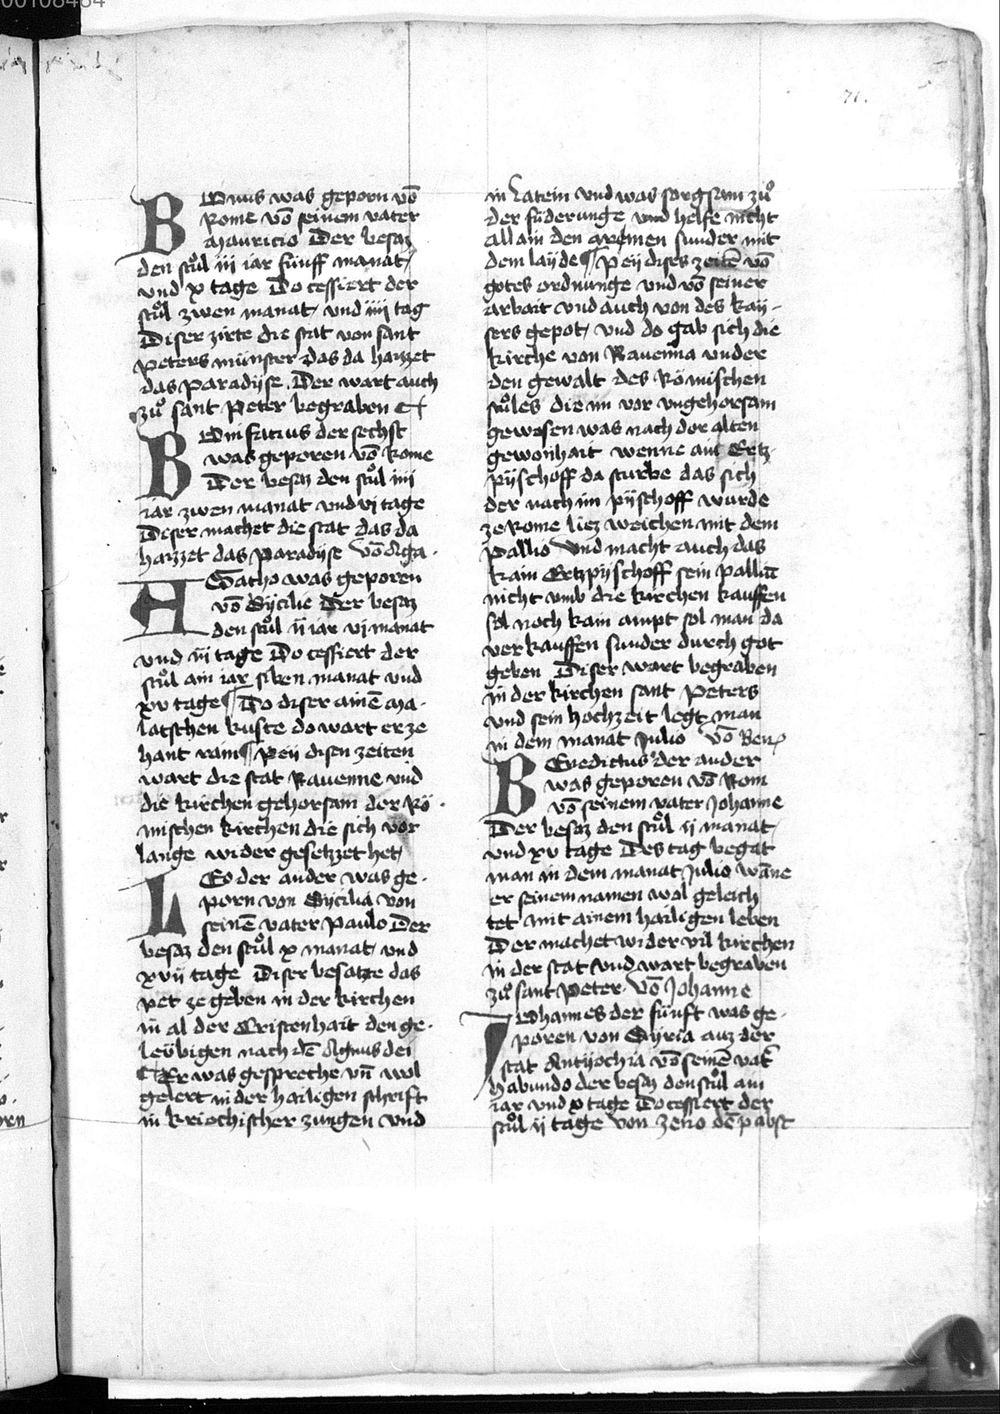 00108484
71.
BOnus was geporn võ
Rome võ seinem vater
Mauricio Der besaz
den stůl iii iar fünff manat
und x tage Do cessiert der
stůl zwen manat und iiii tag
Diser zirte die stat von sant
Peters münster das da haizzet
das paradyse. Der wart auch
zů sant Peter begraben
BOnifacius der sechst
was geporen võ Rome
Der besaz den stůl iiii
iar zwen manat und vi tage
Diser machet die stat das da
haizzet das paradyse võ Aga-
AGatho was geporen
võ Sycilie Der besaz
den stůl ii iar vi manat
und iii tage Do cessiert der
stůl ain iar siben manat und
xv tage ¶ Do diser ainẽ ma-
latschen kuste do wart er ze
hant rain ¶ Pey disen zeiten
wart die stat Ravenne und
die kirchen gehorsam der Rö-
mischen kirchen die sich vor
lange wider gesetzzet het
LEo der ander was ge-
porn von Sycilia von
seinẽ vater Paulo Der
besaz den stůl x manat und
xvii tage Diser besatzte das
pet ze geben in der kirchen
in al der Cristenhait den ge-
leübigen nach dẽ Agnus dei
Er was gespreche uñ wol
gelert in der hailigen schrift
in kriechischer zungen und
in Latein und was sorgsam zů
der füderunge und helfe nicht
allain den armen sunder mit
dem layde ¶ Pey dises zeitẽ võ
gotes ordnunge und võ seiner
arbait und auch von des kay-
sers gepot und do gab sich die
kirche von Ravenna under
den gewalt des Römischen
stůles die im vor ungehorsam
gewesen was nach der alten
gewonhait wenne ain Ertz
pyschoff da sturbe das sich
der nach im pyschoff wurde
ze Rome liez weichen mit dem
Pallio und macht auch das
kain Ertzpyschoff sein palliũ
nicht umb die kirchen kauffen
sol noch kain ampt sol man da
verkauffen sunder durch got
geben Diser wart begraben
in der kirchen sant Peters
und sein hochzeit legt man
in dem manat Julio võ Ben
BEnedictus der ander
was geporen võ Rom
võ seinem vater Johanne
Der besaz den stůl ii manat
und xv tage Des tag begat
man in dem manat Julio wãne
er seinem namen wol geleich
tet mit ainem hailigen leben
Der machet wider vil kirchen
in der stat und wart begraben
zů sant Peter. võ Johanne
IOhannes der fünft was ge-
poren von Syria auz der
stat Antyochia võ seinẽ vat
habundo der besaz den stůl ain
iar und x tage Do cessiert der
stůl ii tage von Zeno dẽ pabst